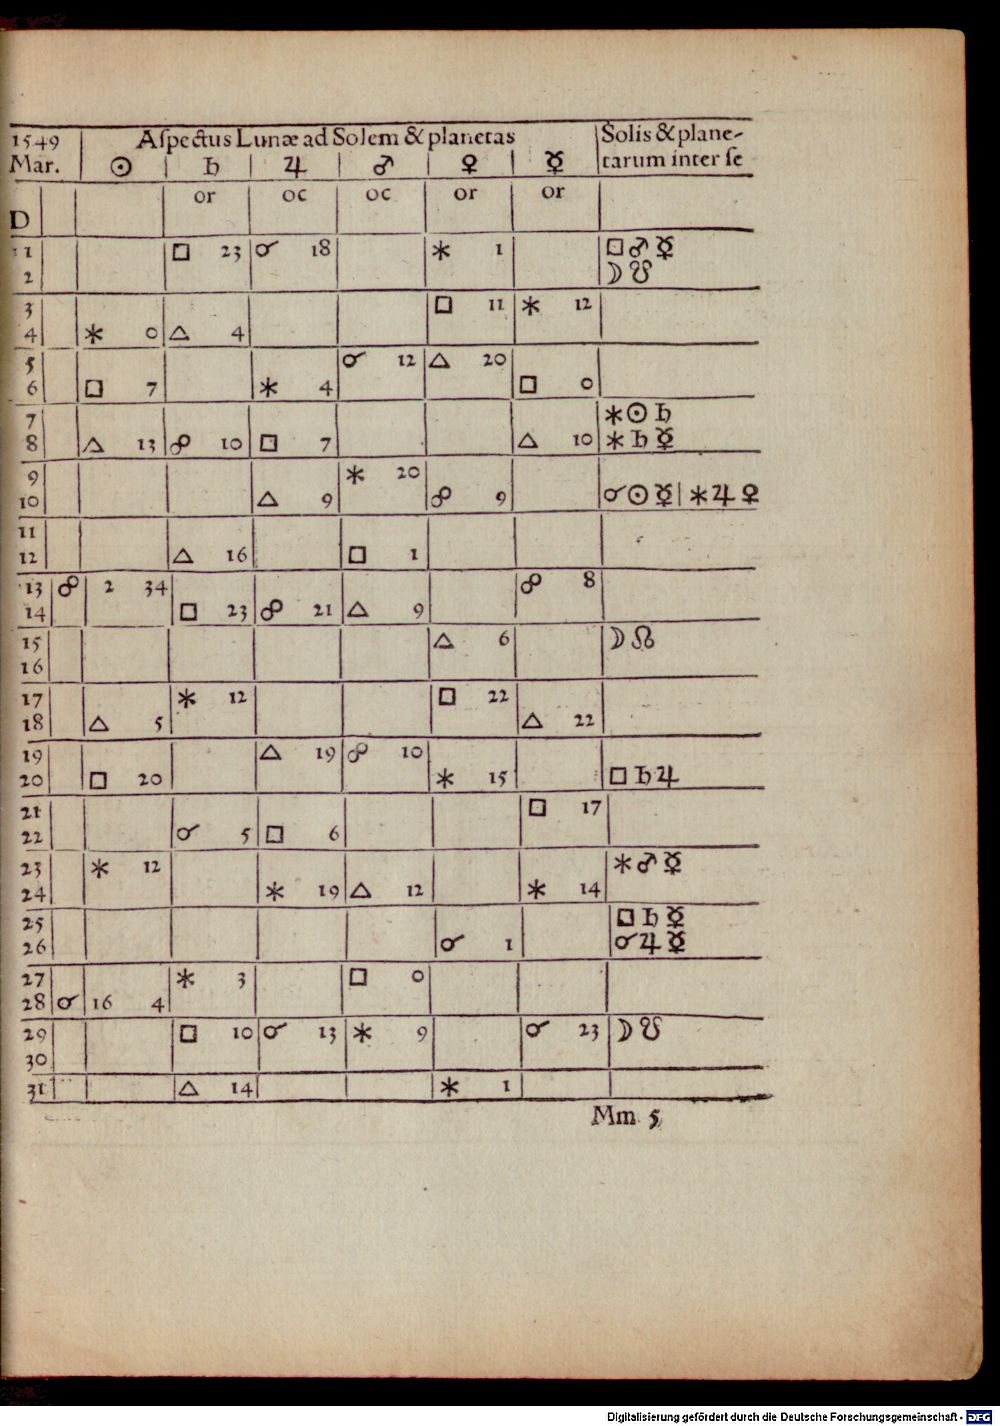 1549 Aſpectus Lunæ ad Solem & planetas Solis & plane-
Mar. ☉ ♄ ♃ ♂ ♀ ☿ tarum inter ſe
or oc oc or or
D
1 □ 23 ☌ 18 ⚹ 1 □ ♂ ☿
2 ☽ ☋
3 □ 11 ⚹ 12
4 ⚹ 0 △ 4
5 ☌ 12 △ 20
6 □ 7 ⚹ 4 □ 0
7 ⚹ ☉ ♄
8 △ 13 ☍ 10 □ 7 △ 10 ⚹ ♄ ☿
9 ⚹ 20
10 △ 9 ☍ 9 ☌ ☉ ☿ | ⚹ ♃ ♀
11
12 △ 16 □ 1
13 ☍ 2 34 ☍ 8
14 □ 23 ☍ 21 △ 9
15 △ 6 ☽ ☊
16
17 ⚹ 12 □ 22
18 △ 5 △ 22
19 △ 19 ☍ 10
20 □ 20 ⚹ 15 □ ♄ ♃
21 □ 17
22 ☌ 5 □ 6
23 ⚹ 12 ⚹ ♂ ☿
24 ⚹ 19 △ 12 ⚹ 14
25 □ ♄ ☿
26 ☌ 1 ☌ ♃ ☿
27 ⚹ 3 □ 0
28 ☌ 16 4
29 □ 10 ☌ 13 ⚹ 9 ☌ 23 ☽ ☋
30
31 △ 14 ⚹ 1
Mm 5
Digitalisierung gefördert durch die Deutsche Forschungsgemeinschaft - DFG